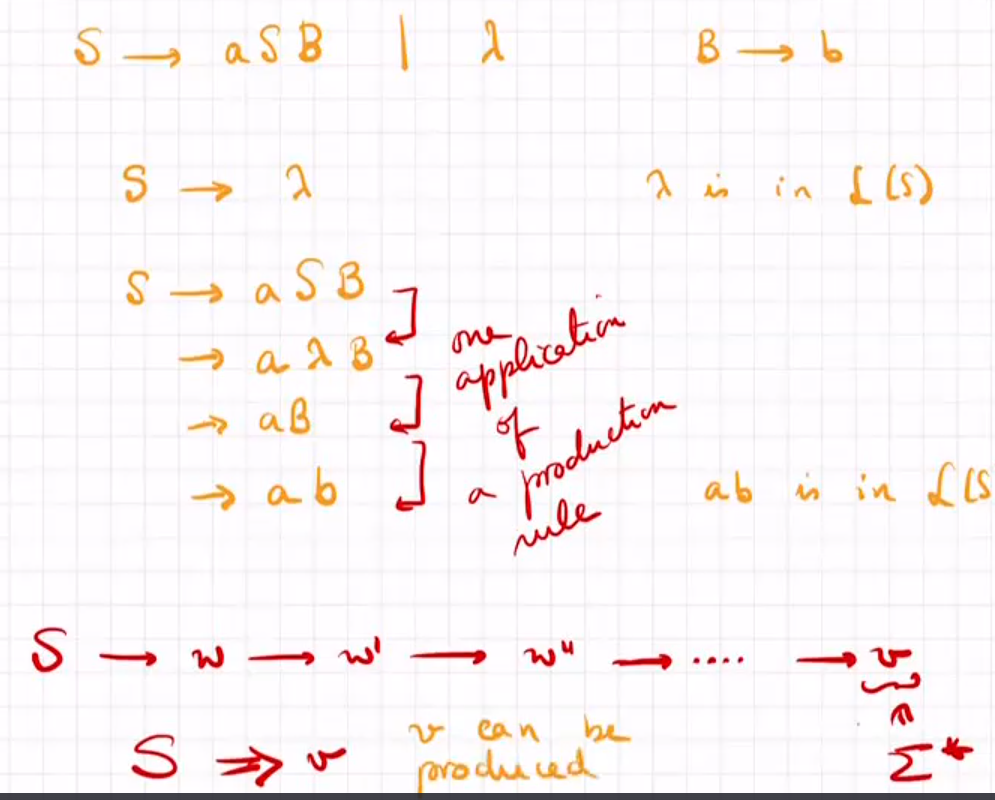 S → a S B | λ B → b
S → λ λ is in L(S)
S → a S B
→ a λ B
→ aB
→ ab
one
application
of
a production
rule
ab is in L(S
S → w → w' → w'' → .... → v
∈
Σ*
S ↠ v v can be
produced